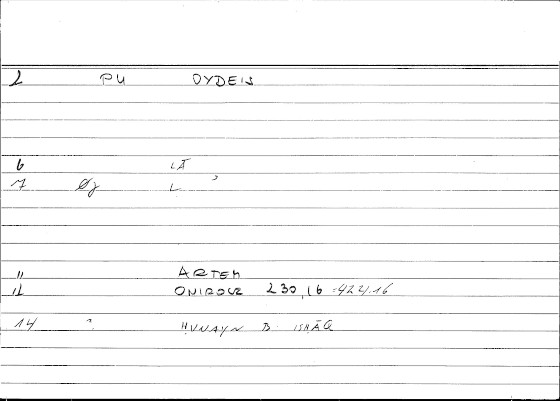 2 PU OYDEIS
6 LĀ
7 Øj L ʾ
11 ARTEM
12 ONIROCR 230,16 = 422.16
14 " ḤUNAYN B. ISḤĀQ